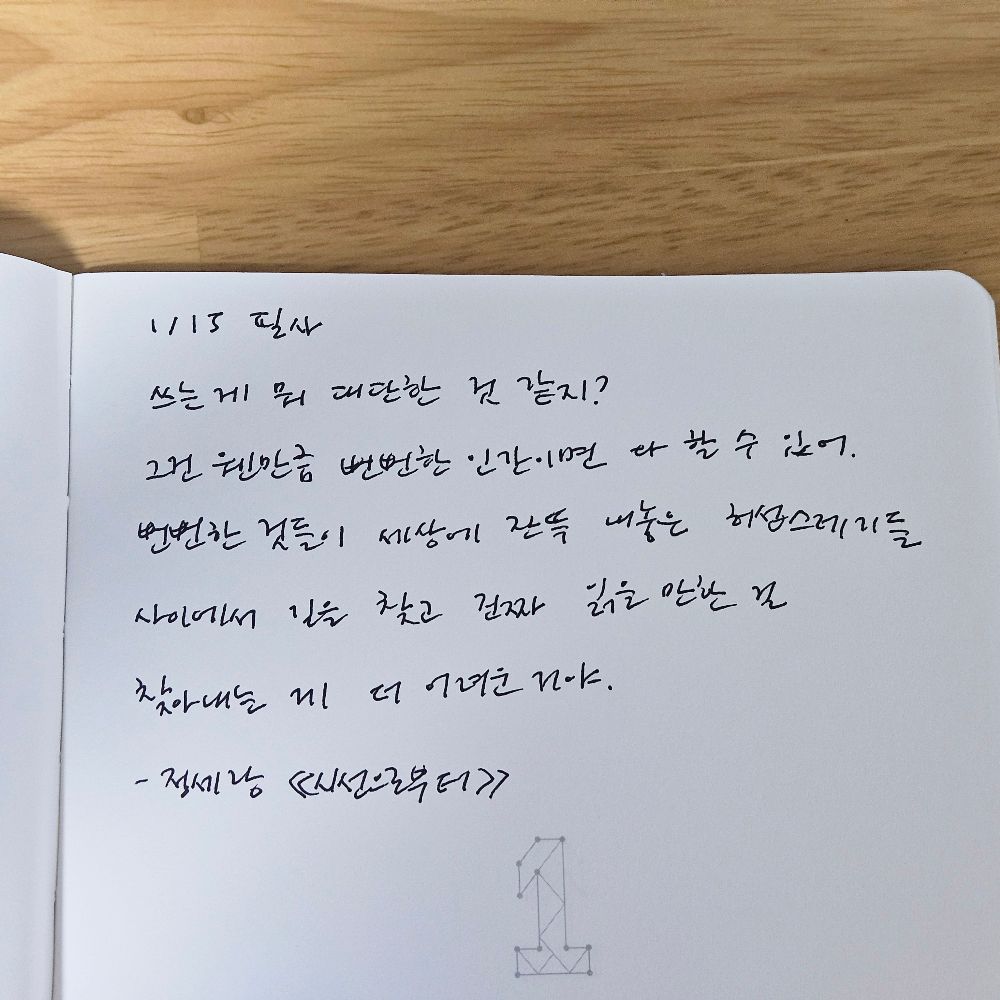 1/15 필사
쓰는 게 뭐 대단한 것 같지?
그건 웬만큼 뻔뻔한 인간이면 다 할 수 있어.
뻔뻔한 것들이 세상에 잔뜩 내놓은 허섭스레기들
사이에서 길을 찾고 진짜 읽을 만한 걸
찾아내는 게 더 어려운 거야.
- 정세랑 《시선으로부터》
1